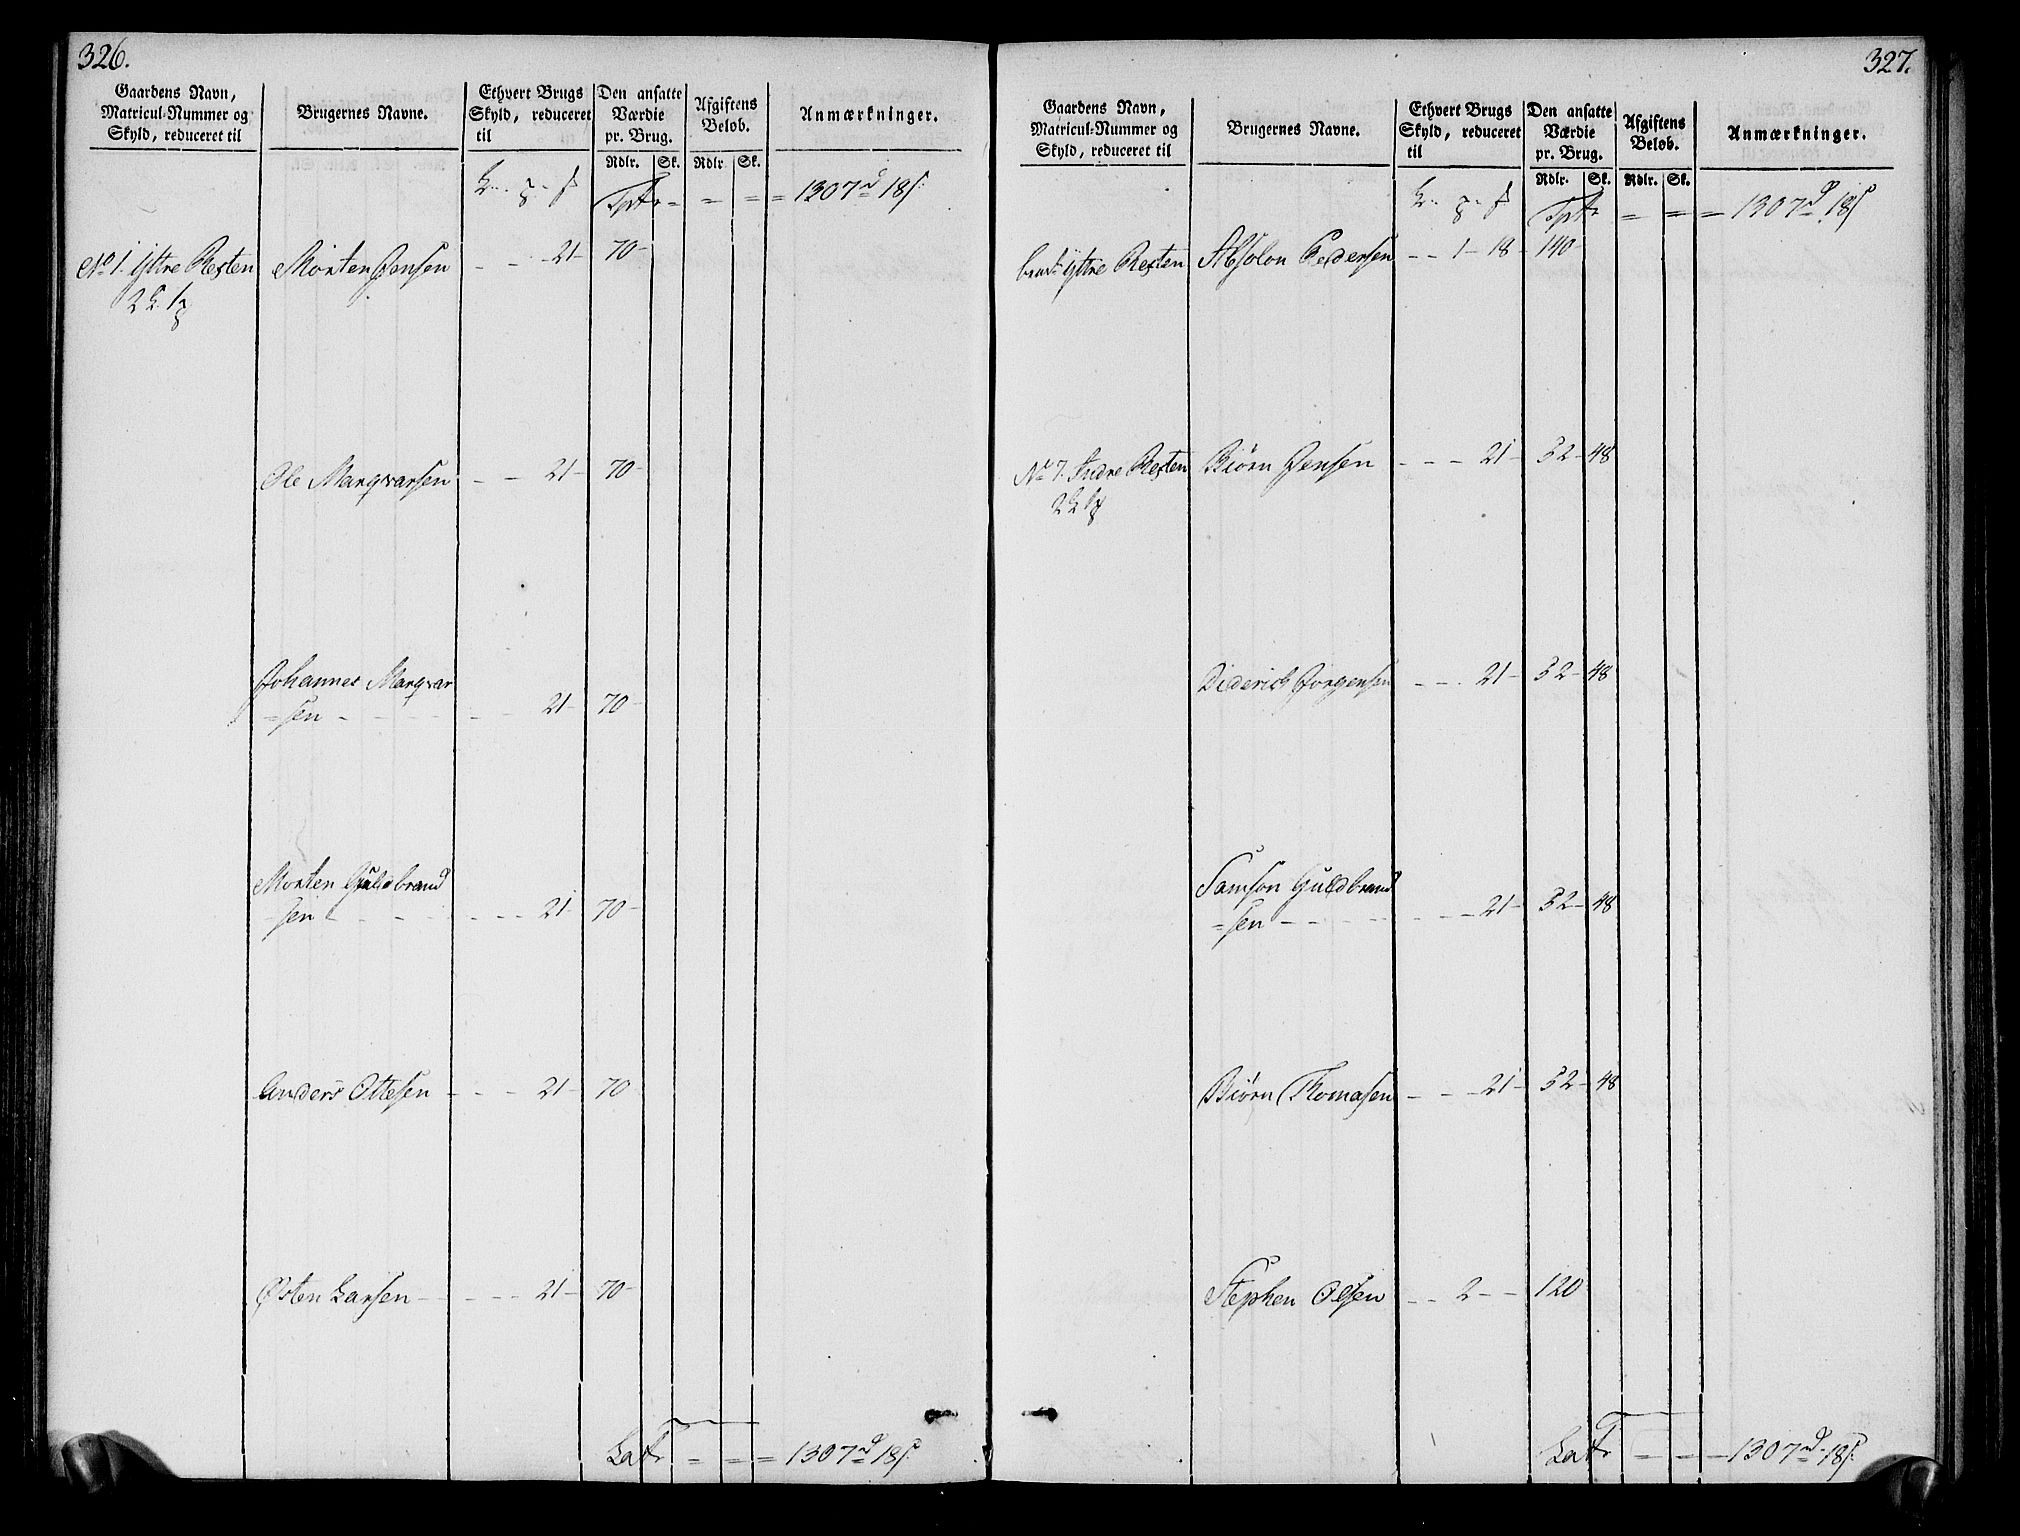 326.
Gaardens Navn,
Matricul-Nummer og
Skyld, reduceret til
Brugernes Navne.
Ethvert Brugs
Skyld, reduceret
til
Den ansatte
Værdie
pr. Brug.
Afgiftens
Beløb.
Anmærkninger.
Rdlr. Sk. Rdlr Sk.
Tptr = = = = 1307 18
No 1. Yttre Resten Morten Jensen - - 21- 70-
Ole Marqvarsen - - 21- 70-
Johannes Marqvar
=sen - - - 21- 70-
Morten Guldbrand
=sen - - - 21- 70-
Anders Ottesen - - - 21- 70-
Østen Larsen - - - 21- 70-
Latr = = = 1307 18
327.
Gaardens Navn,
Matricul-Nummer og
Skyld, reduceret til
Brugernes Navne.
Ethvert Brugs
Skyld, reduceret
til
Den ansatte
Værdie
pr. Brug.
Afgiftens
Beløb.
Anmærkninger.
Rdlr. Sk. Rdlr. Sk.
Tptr = = = 1307 18
Yttre Resten Absolon Pedersen - - 1- 18- 140-
No 7. Indre Resten Biørn Jensen - - - 21- 52- 48
Diderich Jørgensen - - - 21- 52- 48
Samson Guldbrand
=sen - - - 21- 52- 48
Biørn Thomasen - - - 21- 52- 48
Stephen Olsen - - 2 - - 120
Latr = = = 1307 18